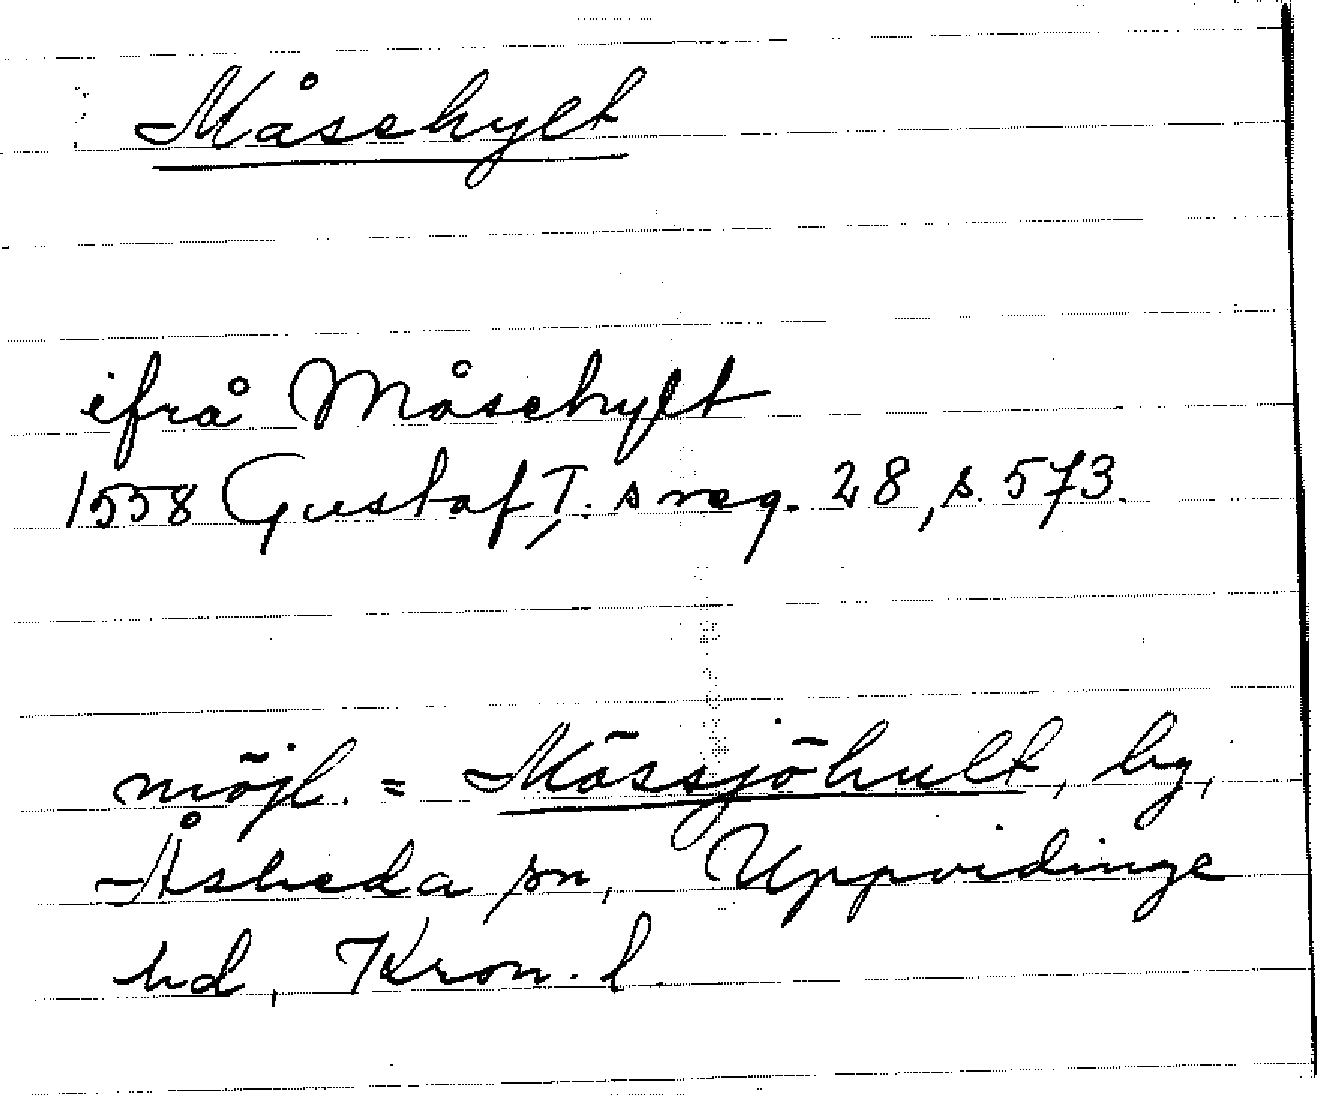 Måsehylt
ifrå Måsehylt
1558 Gustaf I:s reg. 28, s. 573.
möjl. = Mössjöhult, by,
Åsheda sn, Uppvidinge
hd, Kron. l.